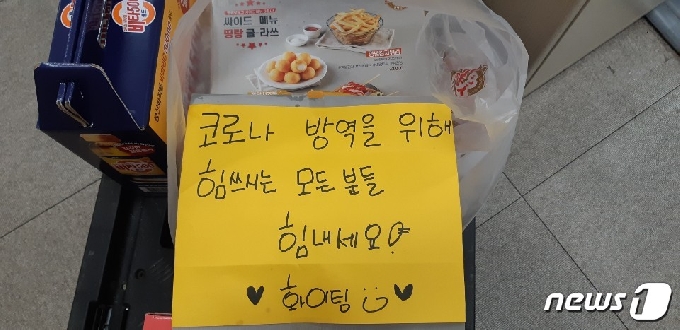 싸이드 메뉴
땅땅 클·라쓰
코로나 방역을 위해
힘쓰시는 모든 분들
힘내세요!
♥ 화이팅 ♥
news1